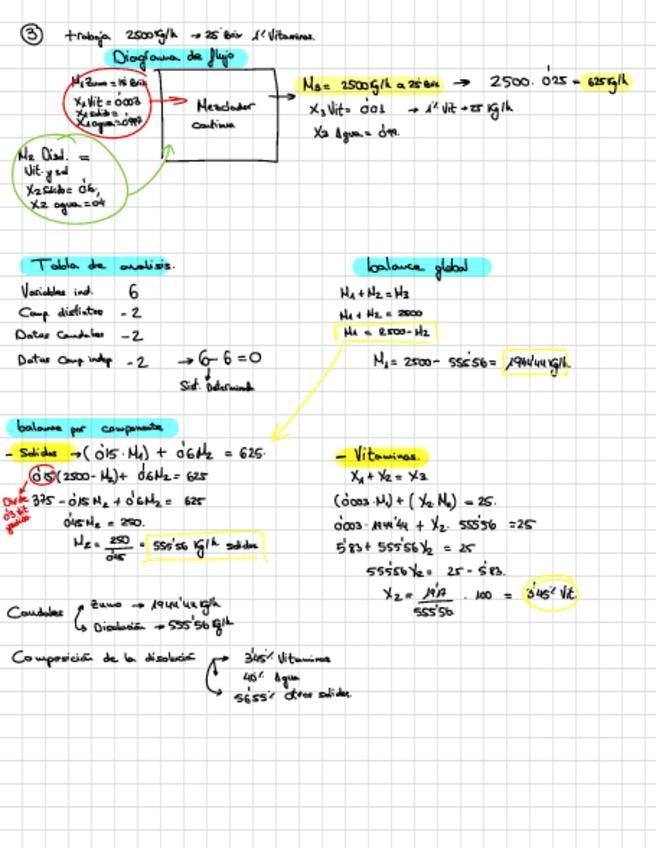 ③ trabaja 2500 Kg/h → 25 Brix 1% Vitaminas.
Diagrama de flujo
M1 Zumo = 15 Brix
X1 Vit = 0'003
X1 solido =
X1 agua = 0'997
Mezclador
continuo
M3 = 2500 Kg/h a 25 Brix → 2500 · 0'25 = 625 Kg/h
X3 Vit = 0'01 → 1% Vit → 25 Kg/h
X3 Agua = 0'99.
M2 Disol. =
Vit. y sol
X2 solido = 0'6,
X2 agua = 0'4
Tabla de analisis.
Variables ind. 6
Comp distintos - 2
Datos Caudales - 2
Datos Comp indep - 2 → 6 - 6 = 0
Sist. Determinado
balance global
M1 + M2 = M3
M1 + M2 = 2500
M1 = 2500 - M2
M1 = 2500 - 555'56 = 1944'44 Kg/h
balance por componente
- Solidos → (0'15 · M1) + 0'6 M2 = 625.
0'15 (2500 - M2) + 0'6 M2 = 625
375 - 0'15 M2 + 0'6 M2 = 625
0'45 M2 = 250.
M2 = 250 / 0'45 = 555'56 Kg/h solidos
- Vitaminas.
X1 + X2 = X3
(0'003 · M1) + (X2 · M2) = 25.
0'003 · 1944'44 + X2 · 555'56 = 25
5'83 + 555'56 X2 = 25
555'56 X2 = 25 - 5'83.
X2 = 19'17 / 555'56 · 100 = 3'45% Vit.
Caudales Zumo → 1944'44 Kg/h
Disolución → 555'56 Kg/h
Composición de la disolución → 3'45% Vitaminas
40% Agua
56'55% otros solidos